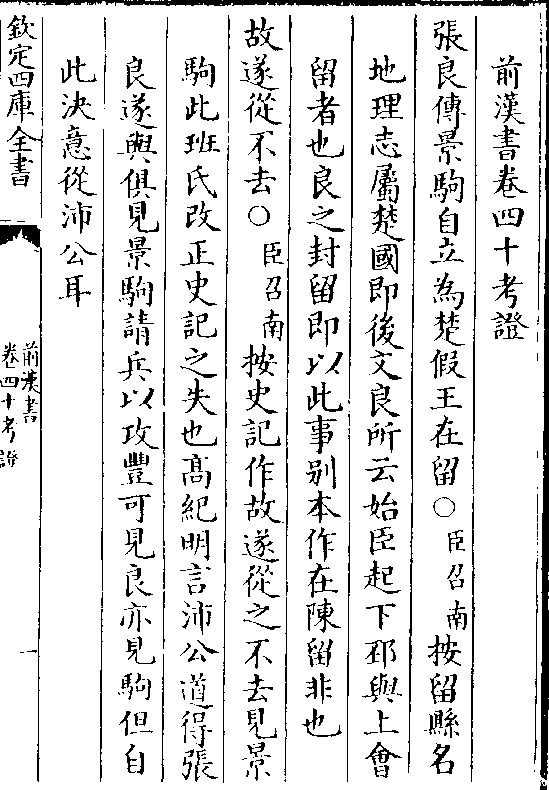 前漢書卷四十考證
張良傳景駒自立為楚假王在留○臣召南按留縣名
地理志屬楚國即後文良所云始臣起下邳與上會
留者也良之封留即以此事别本作在陳留非也
故遂從不去○臣召南按史記作故遂從之不去見景
駒此班氏改正史記之失也高紀明言沛公道得張
良遂與俱見景駒請兵以攻豐可見良亦見駒但自
此決意從沛公耳
欽定四庫全書
前漢書
卷四十考證
一